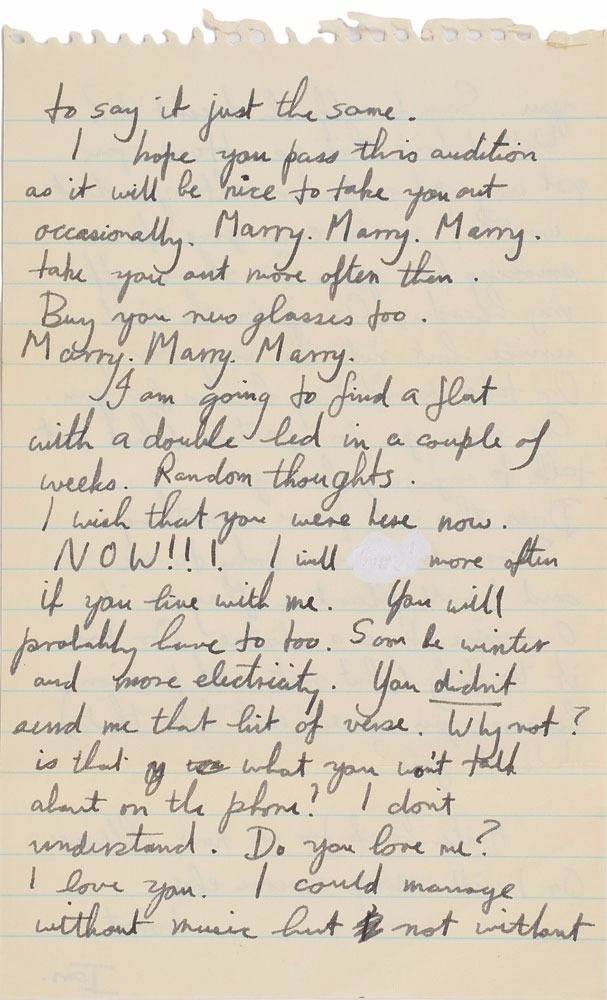 to say it just the same.
I hope you pass this audition
as it will be nice to take you out
occasionally. Marry. Marry. Marry.
take you out more often then.
Buy you new glasses too.
Marry. Marry. Marry.
I am going to find a flat
with a double bed in a couple of
weeks. Random thoughts.
I wish that you were here now.
NOW!!!! I will more often
if you live with me. You will
probably have to too. Soon be winter
and more electricity. You didn't
send me that bit of verse. Why not?
is that what you won't talk
about on the phone? I don't
understand. Do you love me?
I love you. I could manage
without music but not without